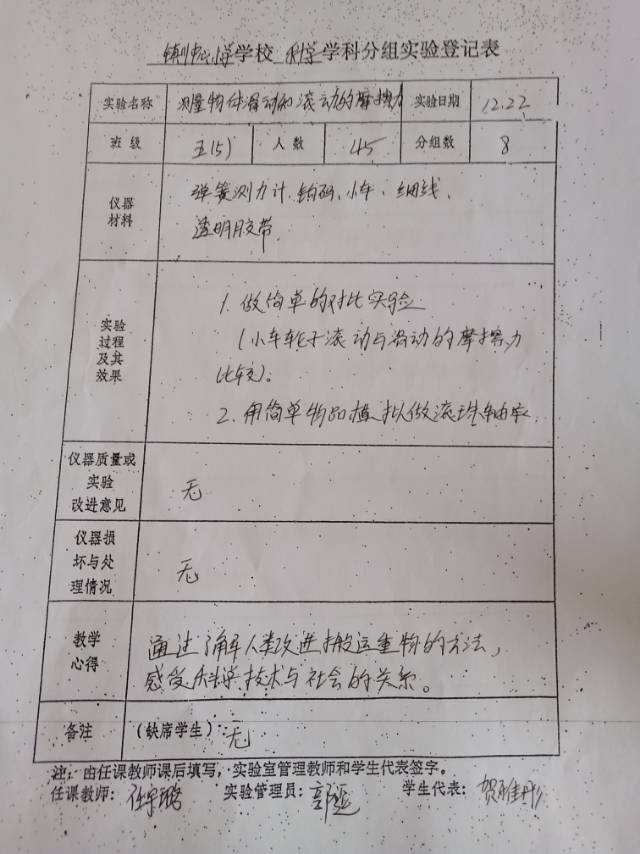 镇中心小学学校 科学学科分组实验登记表
实验名称 测量物体滑动和滚动的摩擦力 实验日期 12.22
班 级 五(5) 人 数 45 分组数 8
仪器材料 弹簧测力计、钩码、小车、细线、
透明胶带
实验过程及其效果 1. 做简单的对比实验
(小车轮子滚动与滑动的摩擦力
比较)。
2. 用简单物品模拟做滚珠轴承
仪器质量或实验改进意见 无
仪器损坏与处理情况 无
教学心得 通过了解人类改进搬运重物的方法,
感受科学技术与社会的关系。
备注 (缺席学生): 无
注: 由任课教师课后填写, 实验室管理教师和学生代表签字。
任课教师: 任 实验管理员: 学生代表: 贺雅彤